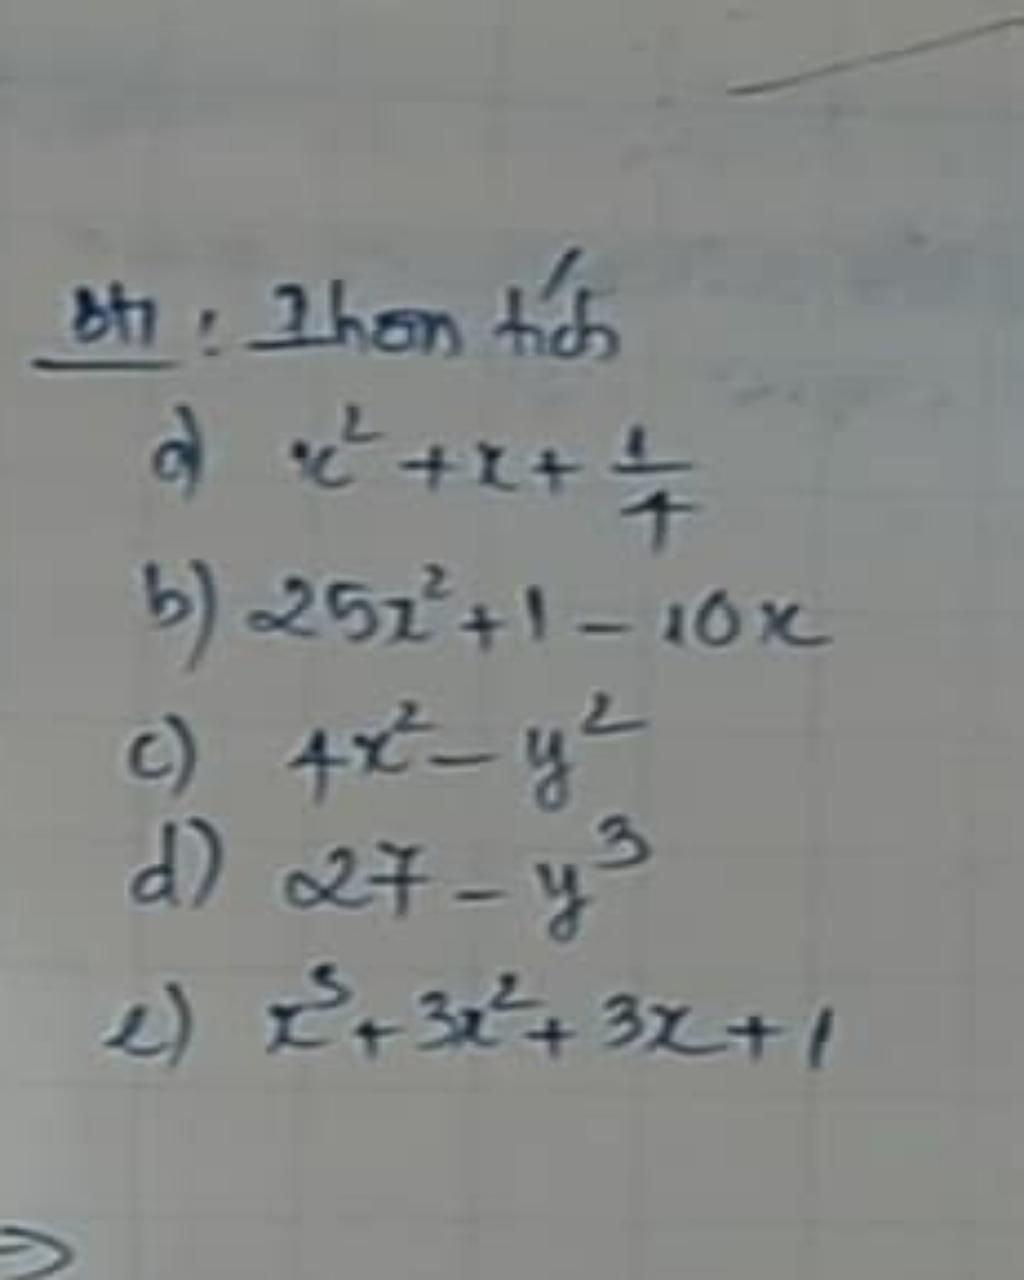 BT1 : Phân tích
a) x² + x + 1/4
b) 25x² + 1 - 10x
c) 4x² - y²
d) 27 - y³
e) x³ + 3x² + 3x + 1